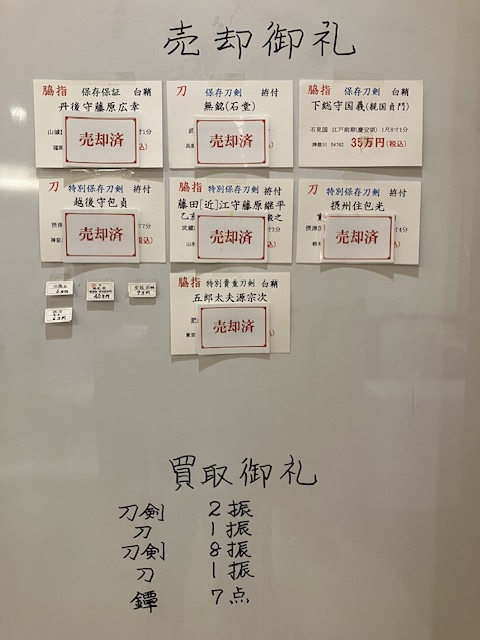 売却御礼
脇指 保存保証 白鞘
丹後守藤原広幸
売却済
刀 保存刀剣 拵付
無銘(石堂)
売却済
脇指 保存刀剣 白鞘
下総守国義(親国貞門)
石見国 江戸前期(慶安頃) 1尺8寸1分
神奈川 54762 35万円(税込)
刀 特別保存刀剣 拵付
越後守包貞
売却済
脇指 特別保存刀剣 拵付
藤田[近]江守藤原継平
売却済
刀 特別保存刀剣 拵付
摂州住包光
売却済
脇指 特別貴重刀剣 白鞘
五郎太夫源宗次
売却済
買取御礼
刀剣 2振
刀 1振
刀剣 8振
刀 1振
鐔 7点